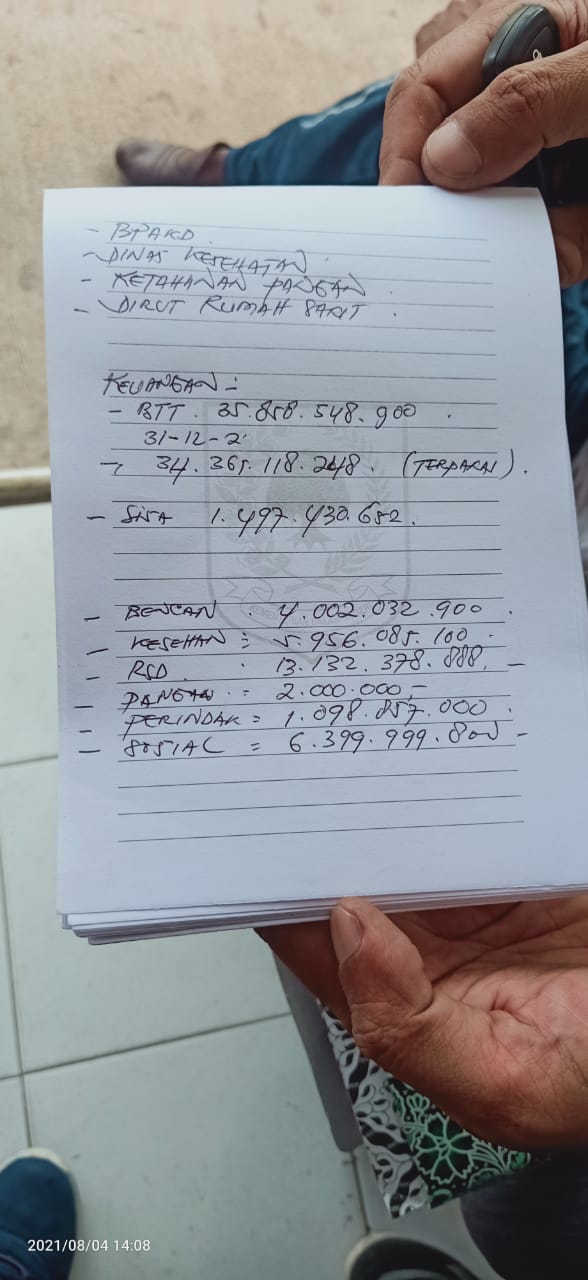 - BPAKD.
- DINAS KESEHATAN.
- KETAHANAN PANGAN.
- DIRUT RUMAH SAKIT.
KEUANGAN :
- BTT. 35.858.548.900.
31-12-2
→ 34.361.118.248. (TERPAKAI).
- SISA 1.497.430.652.
- BENCAN : 4.002.032.900.
- KESEHAN : 5.956.085.100.
- RSD : 13.132.378.888. -
- PANGAN : 2.000.000,-
- PERINDAK = 1.898.857.000.
- SOSIAL = 6.399.999.800 -
2021/08/04 14:08